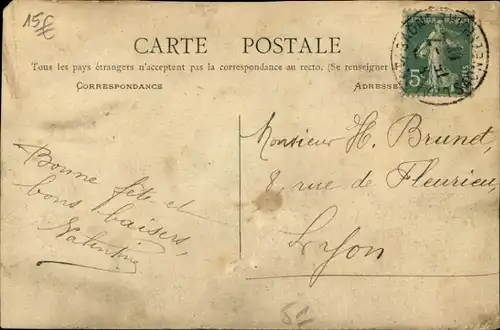 15€
CARTE POSTALE
Tous les pays étrangers n'acceptent pas la correspondance au recto. (Se renseigner
CORRESPONDANCE
ADRESSE
5
Bonne fête et
bons baisers,
Valentine
Monsieur H. Brunet,
8, rue de Fleurieu
Lyon